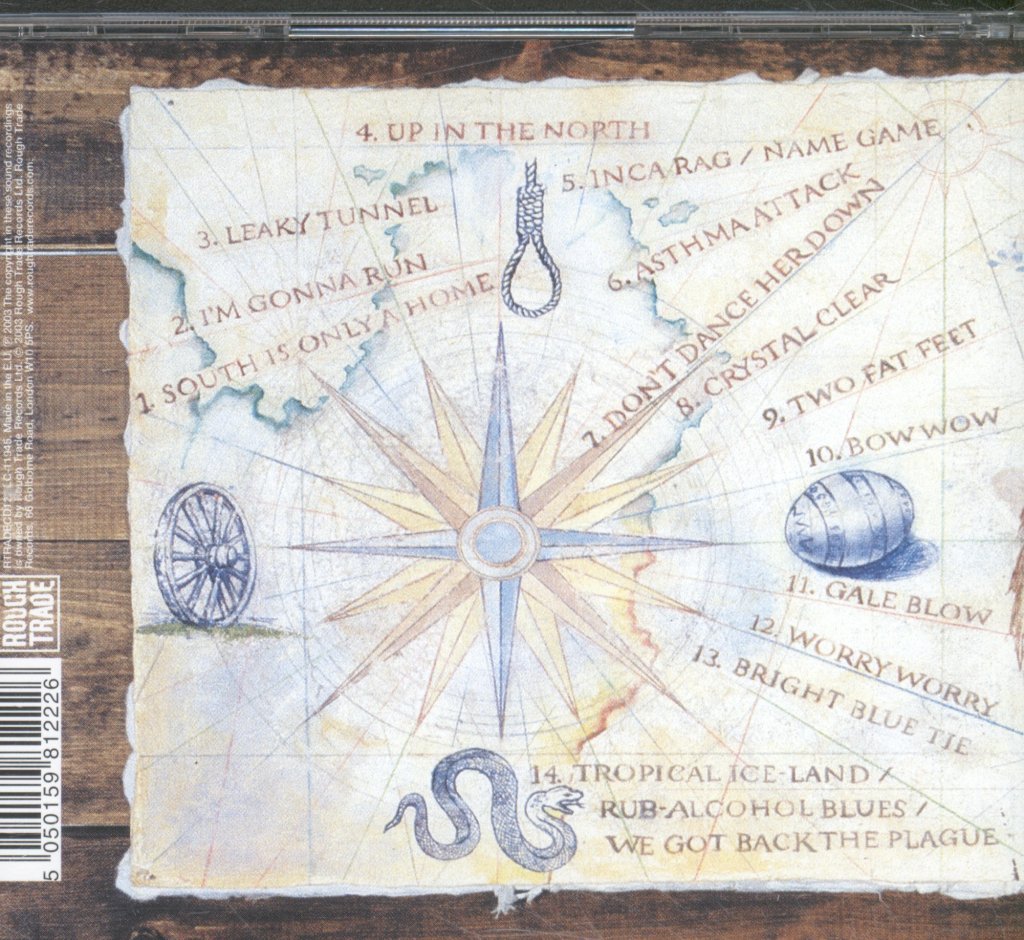 4. UP IN THE NORTH
5. INCA RAG / NAME GAME
3. LEAKY TUNNEL
6. ASTHMA ATTACK
2. I'M GONNA RUN
7. DON'T DANCE HER DOWN
1. SOUTH IS ONLY A HOME
8. CRYSTAL CLEAR
9. TWO FAT FEET
10. BOW WOW
11. GALE BLOW
12. WORRY WORRY
13. BRIGHT BLUE TIE
14. TROPICAL ICE-LAND /
RUB-ALCOHOL BLUES /
WE GOT BACK THE PLAGUE
LC-11045. Made in the E.U. ℗ 2003 The copyright in these sound recordings
is owned by Rough Trade Records Ltd. © 2003 Rough Trade Records Ltd. Rough Trade
Records, 66 Golborne Road, London W10 5PS. www.roughtraderecords.com.
ROUGH
TRADE
5 050159 812226